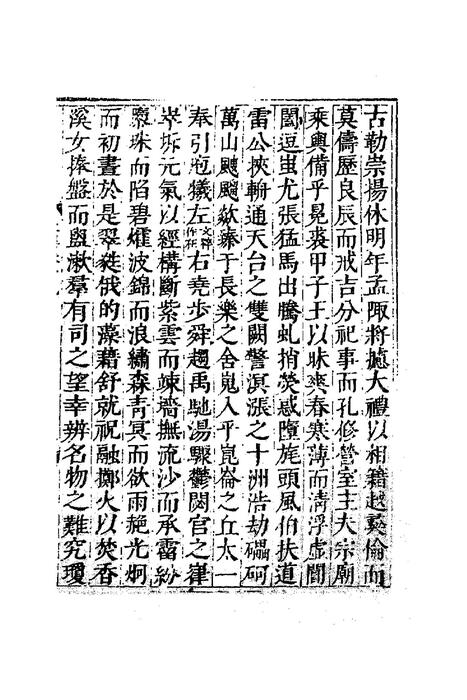 古勒崇揚休明年孟陬將攄大禮以相籍越彝倫而
莫儔歷良辰而戒吉分祀事而孔修營室主夫宗廟
乘輿備乎冕裘甲子王以昧爽春寒薄而清浮虛閶
闔逗蚩尤張猛馬出騰虬捎熒惑墮旄頭風伯扶道
雷公挾輈通天台之雙闕警溟漲之十洲浩劫礧砢
萬山颼飀欻臻于長樂之舍嵬入乎崑崙之丘太一
奉引庖犧左文粹作在右堯步舜趨禹馳湯驟鬱閟宮之嵂
崒拆元氣以經構斷紫雲而竦牆撫流沙而承霤紛
珠而陷碧爥波錦而浪繡森青冥而欲雨艴光炯
而初晝於是翠蕤俄的藻藉舒就祝融擲火以焚香
溪女捧盤而盥漱羣有司之望幸辨名物之難究瓊